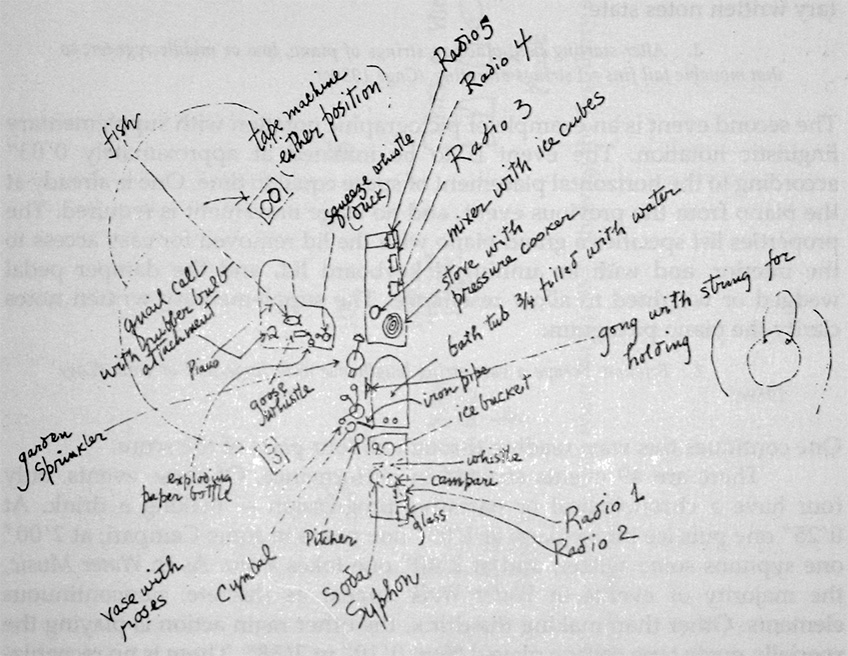 fish
tape machine
either position
squeeze whistle
(duck)
Radio 5
Radio 4
Radio 3
mixer with ice cubes
stove with
pressure cooker
bath tub 3/4 filled with water
gong with string for
holding
quail call
with rubber bulb
attachment
Piano
goose
whistle
iron pipe
ice bucket
garden
sprinkler
exploding
paper bottle
whistle
campari
glass
Radio 1
Radio 2
Pitcher
Cymbal
vase with
roses
Soda
Syphon